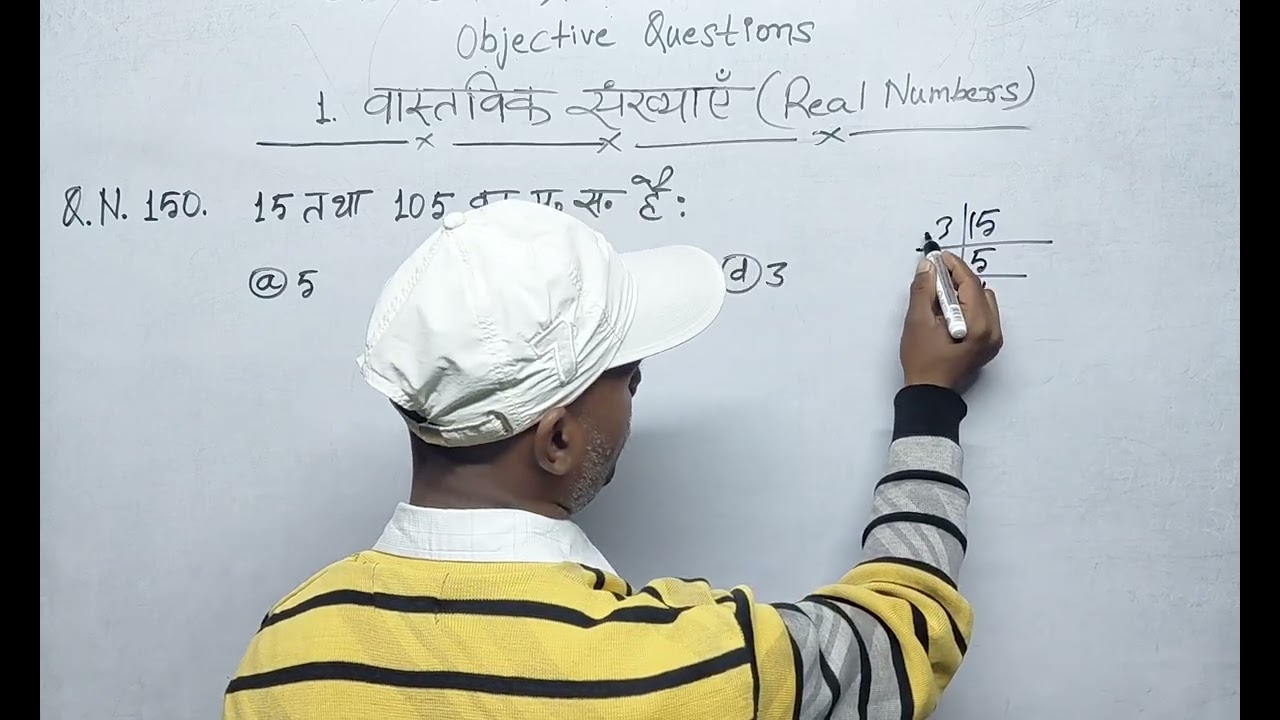 Objective Questions
1. वास्तविक संख्याएँ (Real Numbers)
Q.N. 150. 15 तथा 105 स॰ है :
ⓐ 5 ⓓ 3
3 15
5